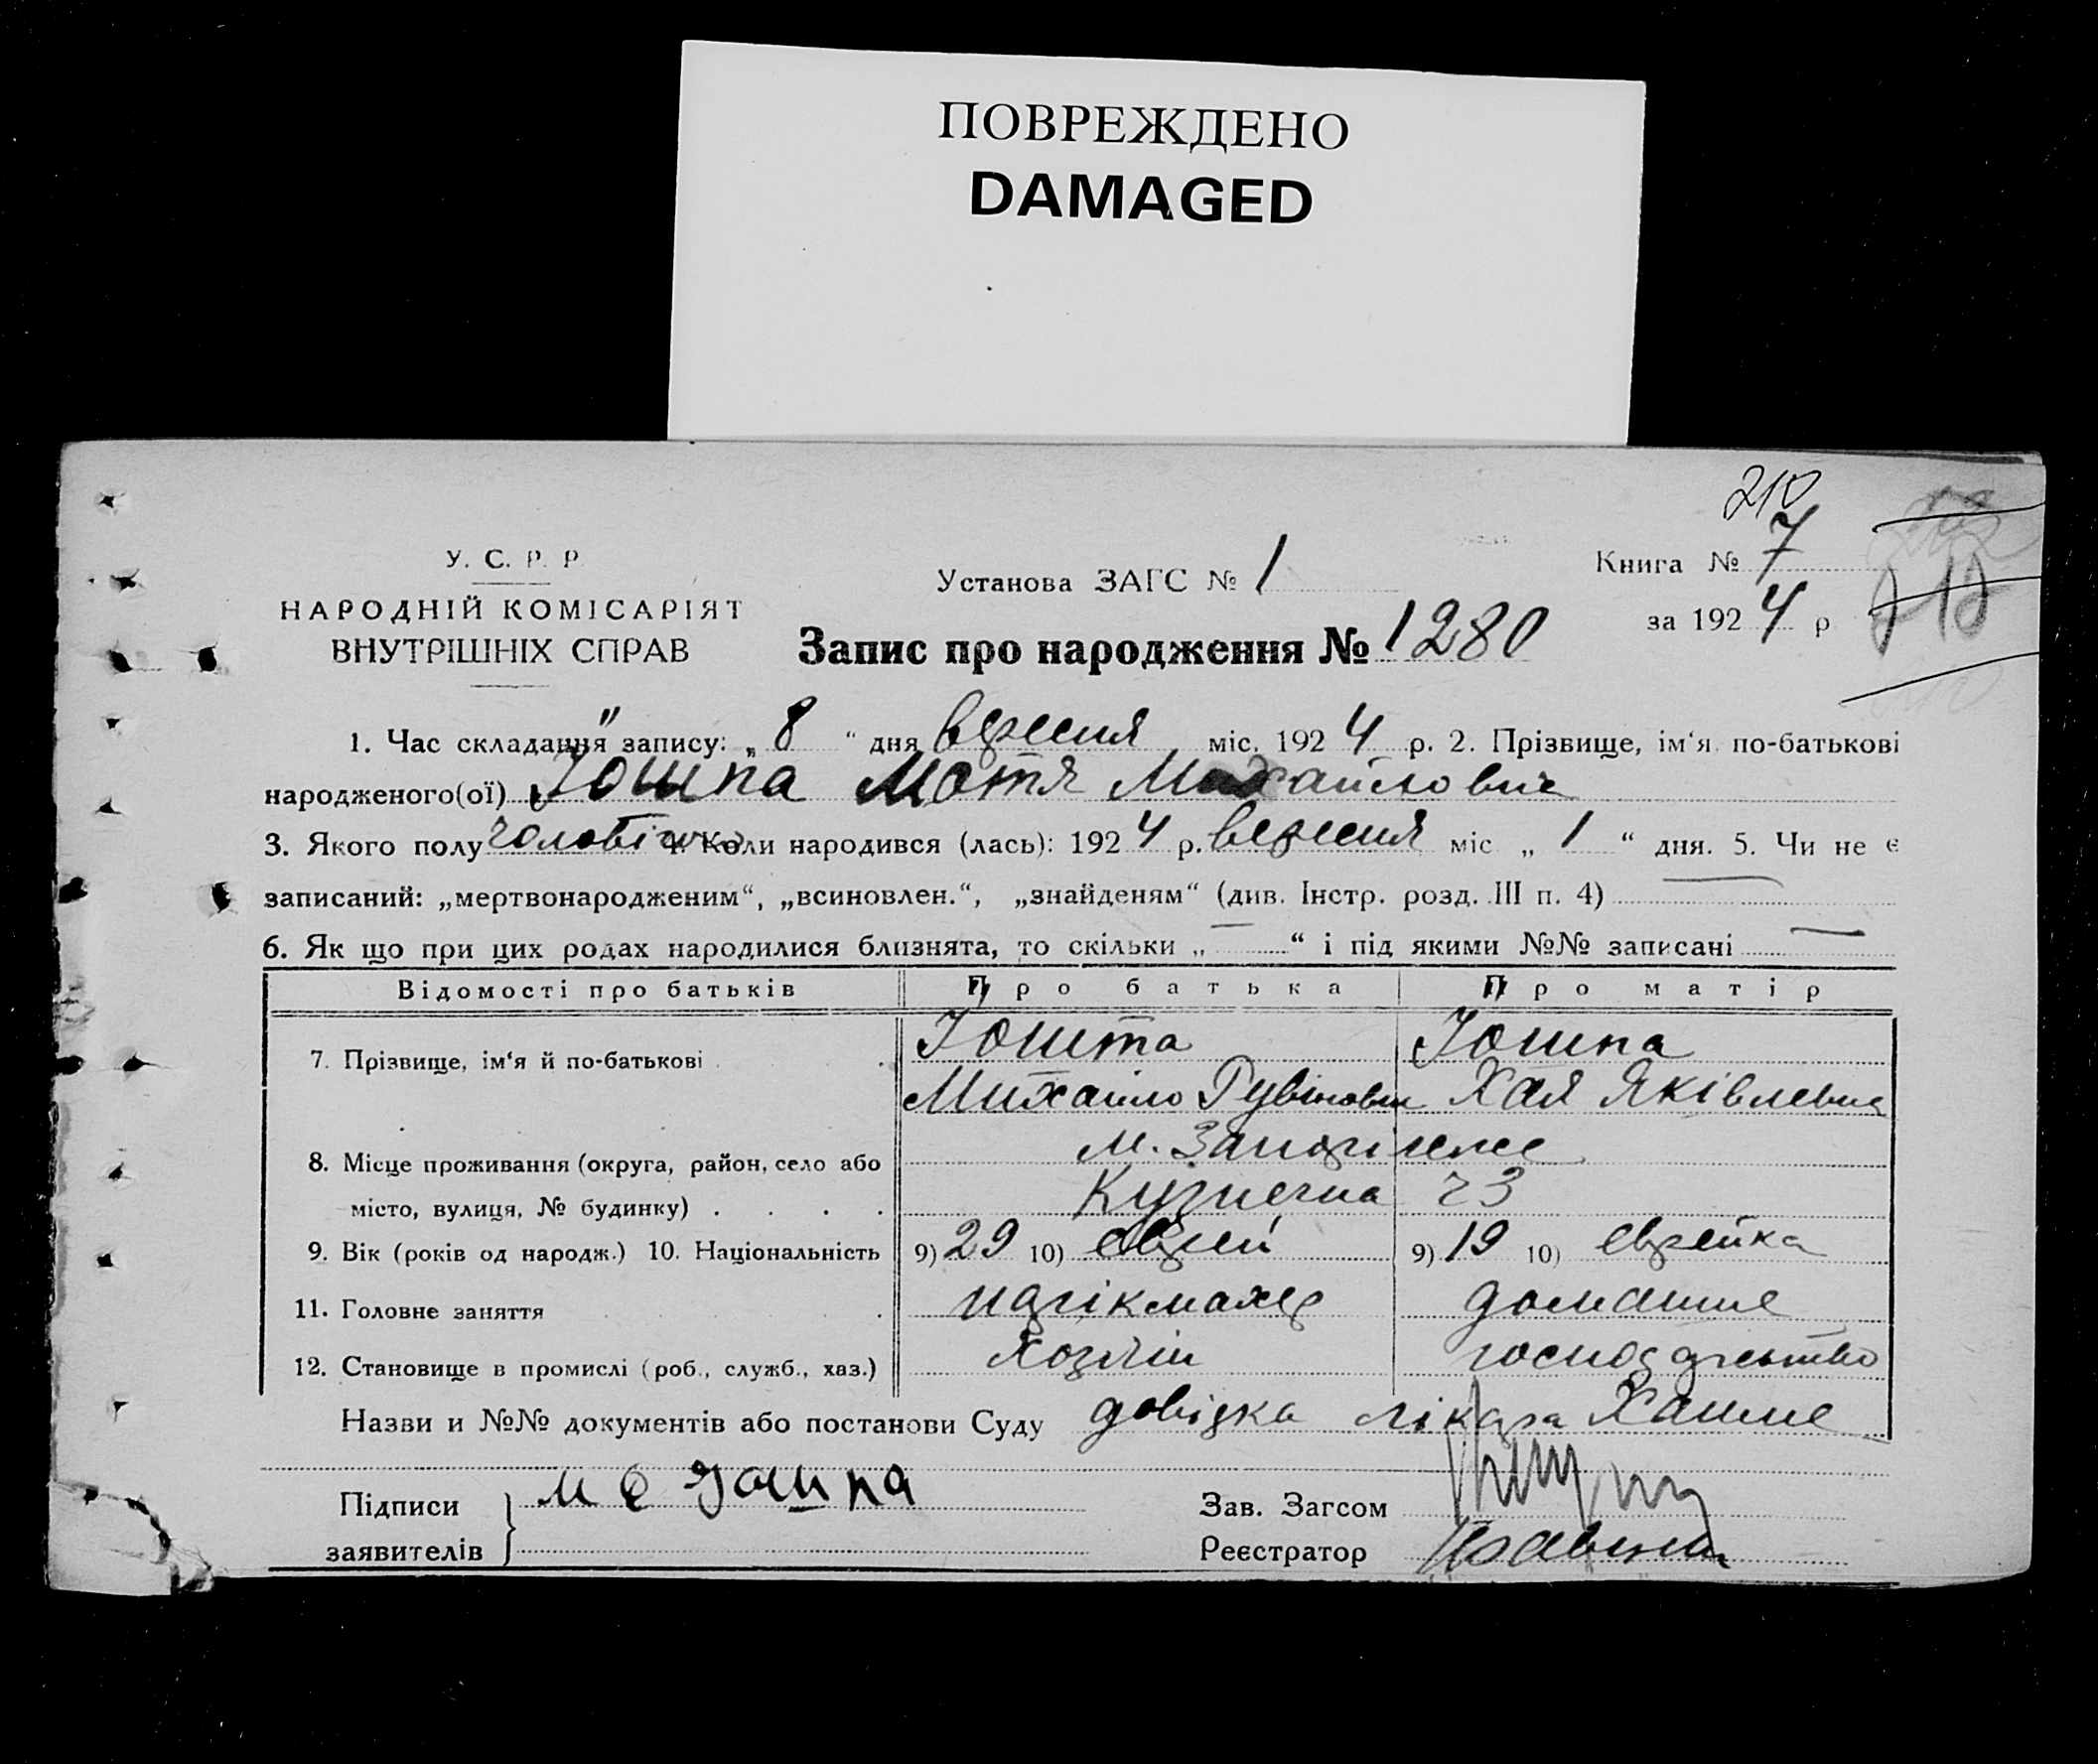 ПОВРЕЖДЕНО
DAMAGED
210
У. С. Р. Р
НАРОДНІЙ КОМІСАРІЯТ
ВНУТРІШНІХ СПРАВ
Установа ЗАГС № 1
Книга № 7
за 1924 р
Запис про народження № 1280
1. Час складання запису: „8“ дня вересня міс. 1924 р. 2. Прізвище, ім'я по-батькові
народженого(ої) Іошпа Мотя Михайлович
3. Якого полу чоловічого 4. Коли народився (лась): 1924 р. вересня міс „1“ дня. 5. Чи не є
записаний: „мертвонародженим“, „всиновлен.“, „знайденям“ (див. Інстр. розд. III п. 4) —
6. Як що при цих родах народилися близнята, то скільки „—“ і під якими №№ записані —
Відомості про батьків Про батька Про матір
7. Прізвище, ім'я й по-батькові Іошпа Іошпа
Михайло Рувінович Хая Яківлевна
8. Місце проживання (округа, район, село або м. Запоріжже
місто, вулиця, № будинку) Кузнечна 23
9. Вік (років од народж.) 10. Національність 9) 29 10) еврей 9) 19 10) еврейка
11. Головне заняття домашнє
12. Становище в промислі (роб., служб., хаз.) господарство
Назви и №№ документів або постанови Суду довідка лікаря
Підписи М Іошпа
заявителів
Зав. Загсом
Реєстратор